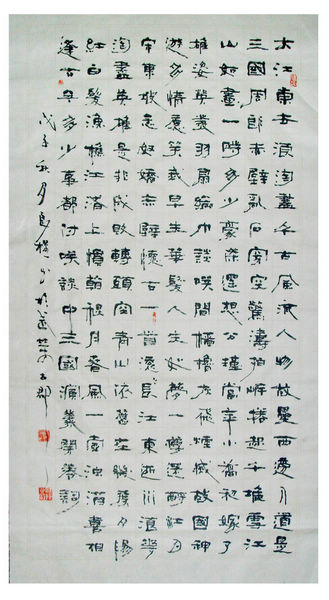 大江東去浪淘盡千古風流人物故壘西邊人道是
三國周郎赤壁亂石穿空驚濤拍岸捲起千堆雪江
山如畫一時多少豪傑遙想公瑾當年小喬初嫁了
雄姿英發羽扇綸巾談笑間檣櫓灰飛煙滅故國神
遊多情應笑我早生華髮人生如夢一尊還酹江月
宋東坡念奴嬌赤壁懷古一首滾滾長江東逝水浪花
淘盡英雄是非成敗轉頭空青山依舊在幾度夕陽
紅白髮漁樵江渚上慣看秋月春風一壺濁酒喜相
逢古今多少事都付笑談中三國演義開卷詞
戊子秋月